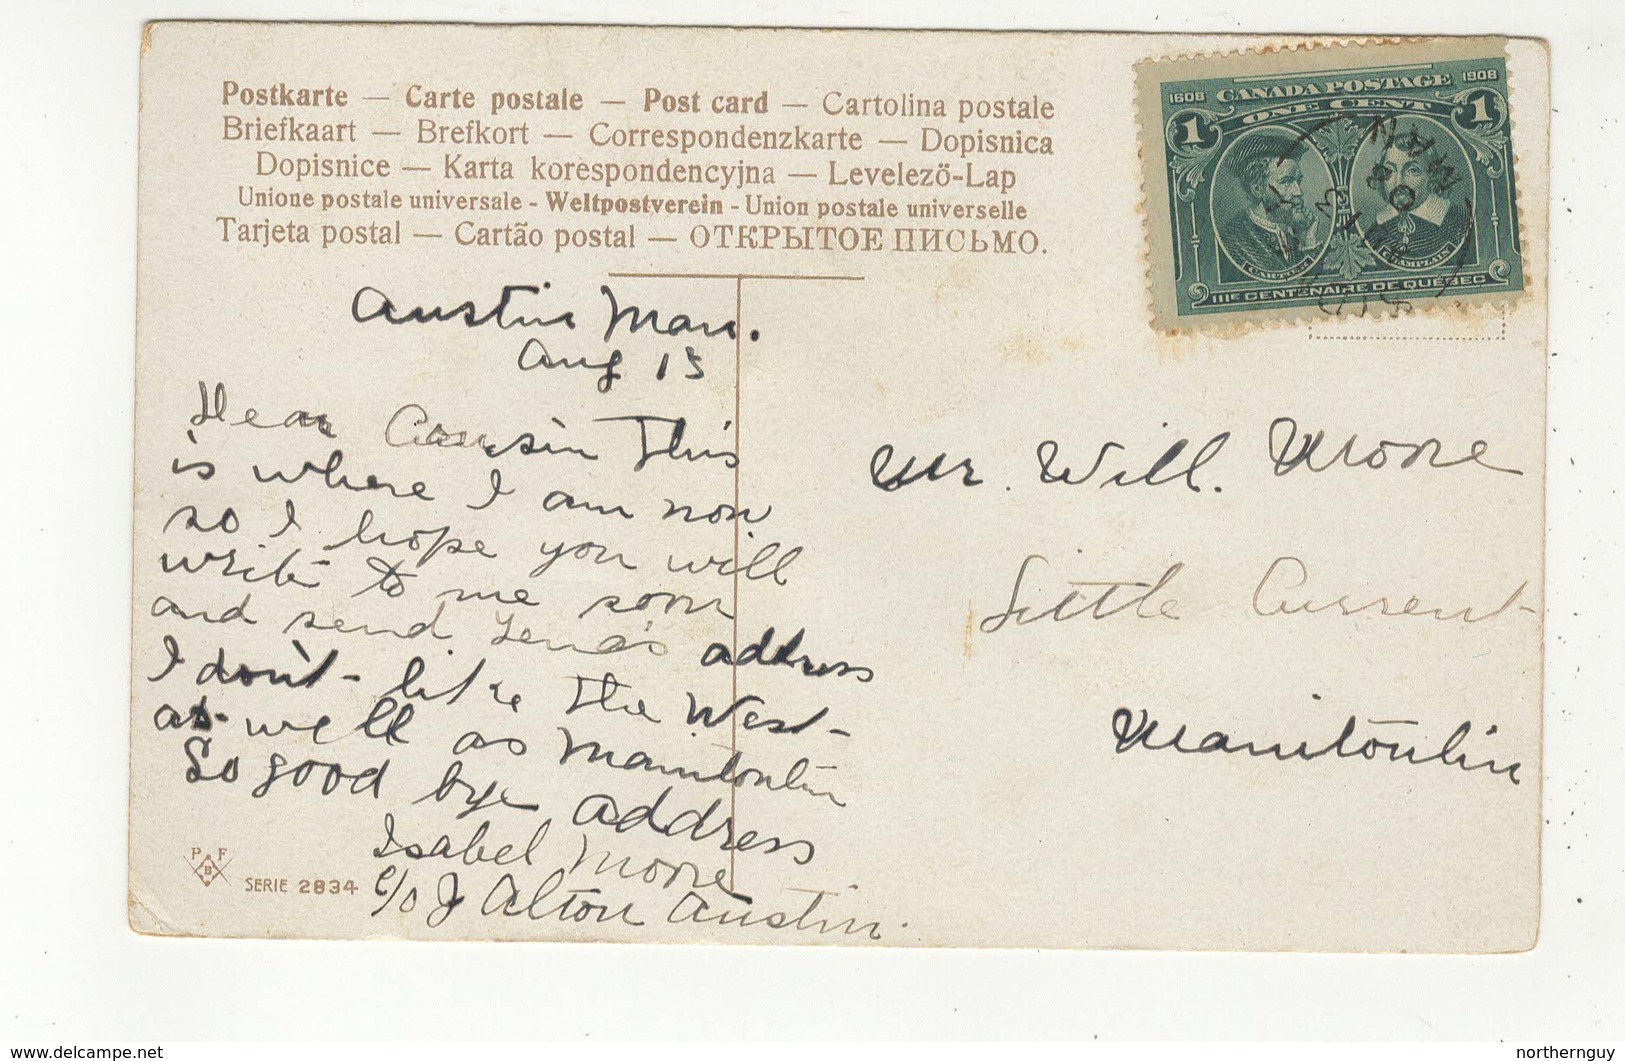 Postkarte — Carte postale — Post card — Cartolina postale
Briefkaart — Brefkort — Correspondenzkarte — Dopisnica
Dopisnice — Karta korespondencyjna — Levelezö-Lap
Unione postale universale - Weltpostverein - Union postale universelle
Tarjeta postal — Cartão postal — ОТКРЫТОЕ ПИСЬМО.
1608 CANADA POSTAGE 1908
ONE CENT
1 1
CARTIER CHAMPLAIN
IIIE CENTENAIRE DE QUÉBEC
MAN
08
Austin Man.
Aug 15
Dear Cousin This
is where I am now
so I hope you will
write to me soon
and send Lena's address
I don't like the West
as well as Manitoulin
So good bye address
Isabel Moore
c/o J Alton Austin.
Mr. Will. Moore
Little Current
Manitoulin
P F
B
SERIE 2834
www.delcampe.net
northernguy